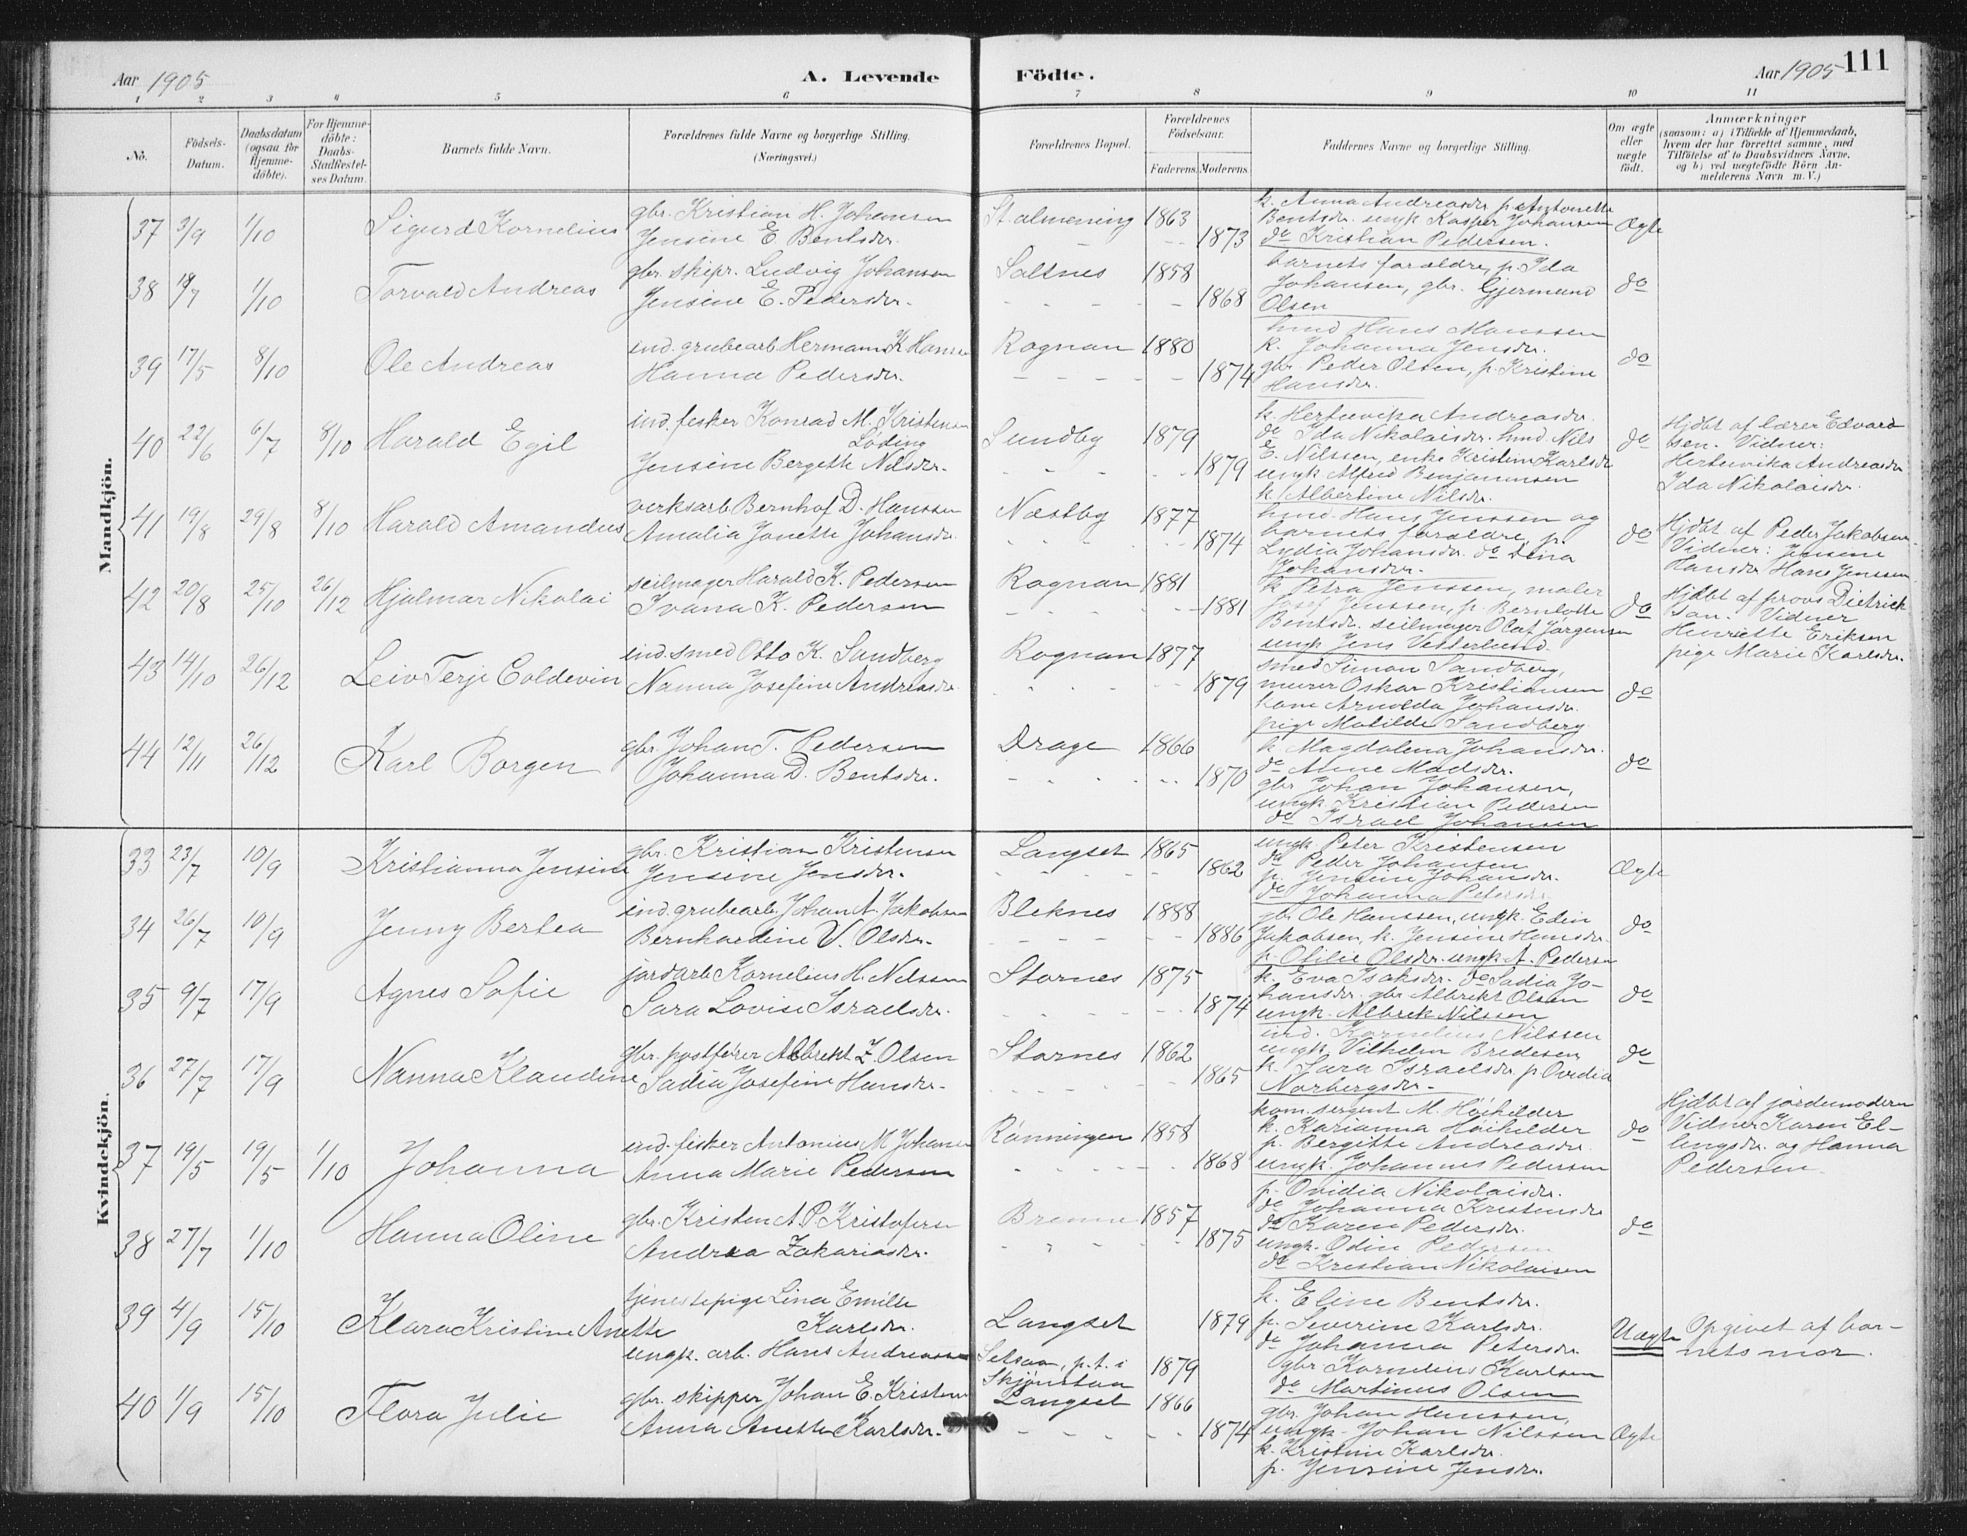 Aar 1905
A. Levende Födte.
Aar 1905 111
1 2 3 4 5 6 7 8 9 10 11
No.
Födsels-Datum.
Daabsdatum (ogsaa för Hjemme-döbte).
For Hjemme-döbte: Daabs-Stadfæstel-ses Datum.
Barnets fulde Navn.
Forældrenes fulde Navne og borgerlige Stilling.
(Næringsvei.)
Forældrenes Bopæl.
Forældrenes Födselsaar.
Faderens. Moderens.
Faddernes Navne og borgerlige Stilling.
Om ægte eller uægte födt.
Anmærkninger
(saasom: a) i Tilfælde af Hjemmedaab,
hvem der har forrettet samme, med
Tilföielse af to Daabsvidners Navne,
og b) ved uægtefödte Börn An-
melderens Navn m. V.)
Mandkjön.
37 3/9 1/10 Sigurd Kornelius
gbr. Kristian H. Johansen
Jensine E. Bentsdr.
St.almening 1863
1873
k. Anna Andreasdr p. Antonette
Bentsdr. ungk Kasper Johansen
do Kristian Pedersen.
Ægte
38 19/7 1/10 Torvald Andreas
gbr. skipr. Ludvig Johansen
Jensine E. Pedersdr.
Saltnes 1858
1868
barnets forældre, p. Ida
Johansen, gbr. Gjermund
Olsen
do
39 17/5 8/10 Ole Andreas
ind. grubearb Hermann K Hansen
Hanna Pedersdr.
Rognan 1880
1874
hmd Hans Monssen
k. Johanna Jensdr.
gbr Peder Olsen, p. Kristine
Hansdr.
do
40 22/6 6/7 8/10 Harald Egil
ind. fisker Konrad M. Kristensen
Løding
Jensine Bergette Nilsdr.
Sundby 1879
1879
k. Hertevika Andreasdr.
do Ida Nikolaisdr. hmd. Nils
E. Nilssen, enke Kristine Karlsdr
ungk Alfred Benjaminsen
k. Albertine Nilsdr.
do
Hjdbt af lærer Edvard
sen. Vidner:
Hertevika Andreasdr
Ida Nikolaisdr.
41 19/8 29/8 8/10 Harald Amandus
verksarb. Bernhof D. Hanssen
Amalia Jonette Johansdr.
Næstby 1877
1874
hmd. Hans Jenssen og
barnets forældre, p.
Lydia Johansdr. do Dina
Johansdr.
do
Hjdbt af Peder Jakobsen
Vidner: Jensine
Hansdr Hans Jenssen
42 20/8 25/10 26/12 Hjalmar Nikolai
seilmager Harald K. Pedersen
Ivana K. Pedersen
Rognan 1881
1881
k. Petra Jenssen, maler
Jenssen, p. Bernlotte
Bentsdr. seilmager Olaf Jørgensen
ungk Jens Vesterlund.
do
Hjdbt af provs Dietrick
son. Vidner
Henriette Eriksen
pige Marie Karlsdr.
43 14/10 26/12 Leiv Terje Coldevin
ind. smed Otto K. Sandberg
Nanna Josefine Andreasdr.
Rognan 1877
1879
smed Simon Sandberg,
murer Oskar Kristiansen
kone Arnolda Johansdr.
pige Matilde Sandberg.
do
44 12/11 26/12 Karl Borgen
gbr. Johan T. Pedersen
Johanna D. Bentsdr.
Drage 1866
1870
k. Magdalena Johansdr.
do Aline Madsdr.
gbr Johan Johansen,
ungk Kristian Pedersen
do Israel Johansen
do
Kvindekjön.
33 23/7 10/9 Kristianna Jensine
gbr. Kristian Kristensen
Jensine Jensdr.
Langset 1865
1862
ungk Peter Kristensen
do Peder Johansen
p. Jensine Johansdr.
do Johanna Petersdr
Ægte
34 26/7 10/9 Jenny Bertea
ind. grubearb. Johan A. Jakobsen
Bernhardine V. Olsdr.
Bleknes 1888
1886
gbr Ole Hanssen, ungk. Edin
Jakobsen, k. Jensine Hansdr.
p. Otilie Olsdr. ungk A. Pedersen
do
35 9/7 17/9 Agnes Sofie
jordarb Kornelius H. Nilssen
Sara Lovise Israelsdr.
Stornes 1875
1874
k. Eva Isaksdr. do Sadia Jo-
hansdr. gbr Albrekt Olsen
ungk. Albrek Nilssen
do
36 27/7 17/9 Nanna Klaudine
gbr. postfører Albrekt Z. Olsen
Sadia Josefine Hansdr.
Stornes 1862
1865
ind. Kornelius Nilssen
ungk Vilhelm Bredesen
k. Sara Israelsdr. p. Ovidia
Norbergsdr.
do
37 19/5 19/5 1/10 Johanna
ind. fisker Antonius M Johansen
Anna Marie Pedersen
Rønningen 1858
1868
kom. sergent M. Høihilder
k. Karianna Høihilder
p. Bergitte Andreasdr.
ungk. Johannes Pedersen
p. Ovidia Nikolaisdr.
do
Hjdbt af jordemoderen
Vidner Karen El-
lingsdr. og Hanna
Pedersen.
38 27/7 1/10 Hanna Oline
gbr. Kristen A. P. Kristofersen
Andrea Zakariasdr.
Brenne 1857
1875
do Johanna Kristensdr
do Karen Pedersdr.
ungk. Odin Pedersen
do Kristian Nikolaisen
do
39 4/9 15/10 Klara Kristine Anette
tjenestepige Lina Emilie
Karlsdr.
ungk. arb. Hans Andreassen
Langset 1879
Setsaa, p.t. i 1879
Skjønstaa
k. Eline Bentsdr.
p. Severine Karlsdr.
do Johanna Petersdr.
gbr Kornelius Karlsen
do Martinus Olsen
Uægte
Opgivet af bar-
nets mor.
40 1/9 15/10 Flora Julie
gbr. skipper Johan E. Kristensen
Anna Anette Karlsdr.
Langset 1866
1874
gbr. Johan Hanssen,
ungk. Johan Nilssen
k. Kristine Karlsdr.
p. Jensine Jensdr.
Ægte